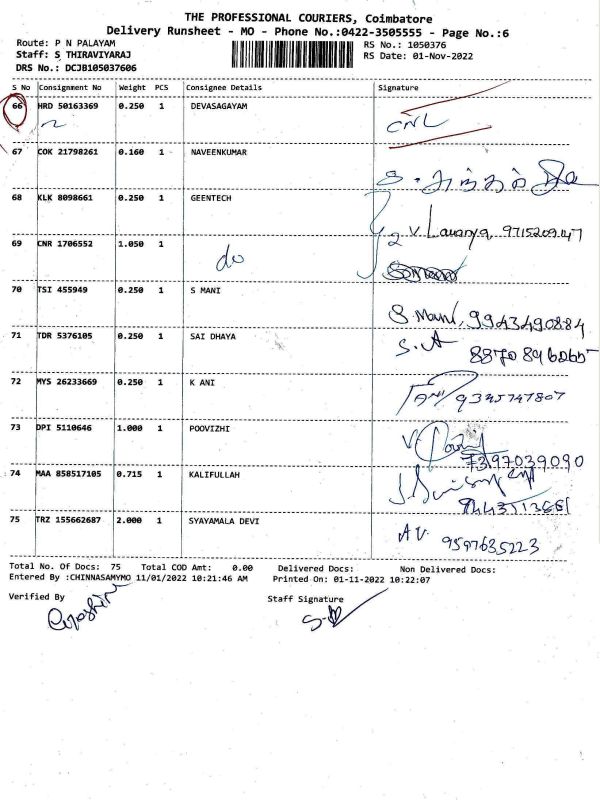 THE PROFESSIONAL COURIERS, Coimbatore
Delivery Runsheet - MO - Phone No.:0422-3505555 - Page No.:6
Route: P N PALAYAM
RS No.: 1050376
Staff: S THIRAVIYARAJ
RS Date: 01-Nov-2022
DRS No.: DCJB105037606
S No Consignment No Weight PCS Consignee Details Signature
66 HRD 50163369 0.250 1 DEVASAGAYAM
CNL
67 COK 21798261 0.160 1 NAVEENKUMAR
68 KLK 8098661 0.250 1 GEENTECH
V. Lavanya 9715209147
69 CNR 1706552 1.050 1
do
70 TSI 455949 0.250 1 S MANI
S. Mani, 9943490884
71 TDR 5376105 0.250 1 SAI DHAYA
S.A
8870896265
72 MYS 26233669 0.250 1 K ANI
9345747807
73 DPI 5110646 1.000 1 POOVIZHI
7397039090
74 MAA 858517105 0.715 1 KALIFULLAH
9443513661
75 TRZ 155662687 2.000 1 SYAYAMALA DEVI
AV. 9597635223
Total No. Of Docs: 75 Total COD Amt: 0.00 Delivered Docs: Non Delivered Docs:
Entered By :CHINNASAMYMO 11/01/2022 10:21:46 AM Printed On: 01-11-2022 10:22:07
Verified By
Staff Signature